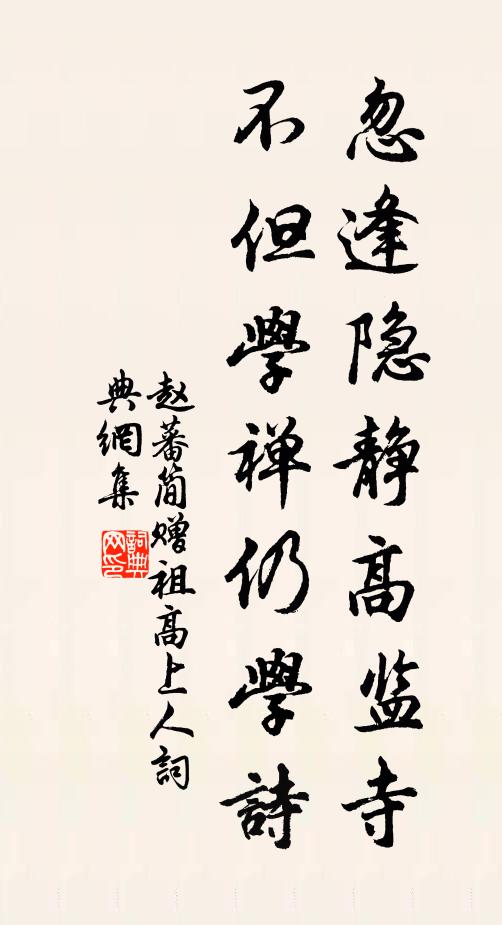 忽逢隐静高监寺
不但學禅仍学詩
赵蕃简赠祖高上人詞
典網集
詞典网印